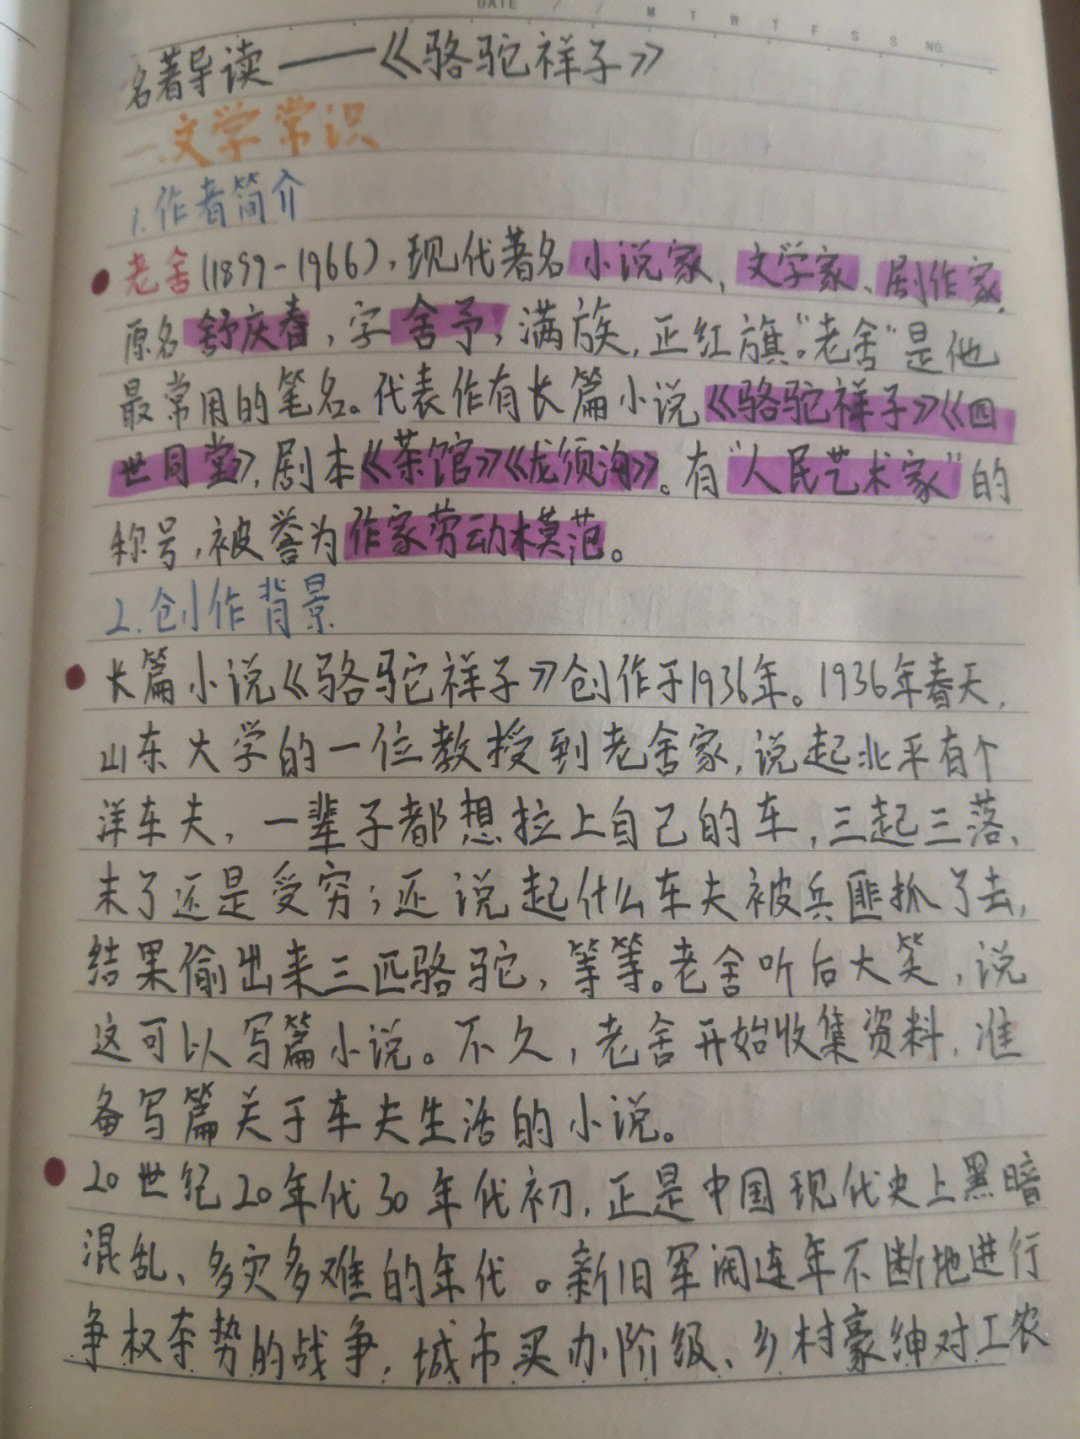 DATE / / M T W T F S S NO.
名著导读——《骆驼祥子》
一.文学常识
1.作者简介
老舍(1899-1966),现代著名小说家、文学家、剧作家,
原名舒庆春,字舍予,满族,正红旗。“老舍”是他
最常用的笔名。代表作有长篇小说《骆驼祥子》《四
世同堂》,剧本《茶馆》《龙须沟》。有“人民艺术家”的
称号,被誉为作家劳动模范。
2.创作背景
长篇小说《骆驼祥子》创作于1936年。1936年春天,
山东大学的一位教授到老舍家,说起北平有个
洋车夫,一辈子都想拉上自己的车,三起三落,
末了还是受穷;还说起什么车夫被兵匪抓了去,
结果偷出来三匹骆驼,等等。老舍听后大笑,说
这可以写篇小说。不久,老舍开始收集资料,准
备写篇关于车夫生活的小说。
20世纪20年代30年代初,正是中国现代史上黑暗
混乱、多灾多难的年代。新旧军阀连年不断地进行
争权夺势的战争,城市买办阶级、乡村豪绅对工农